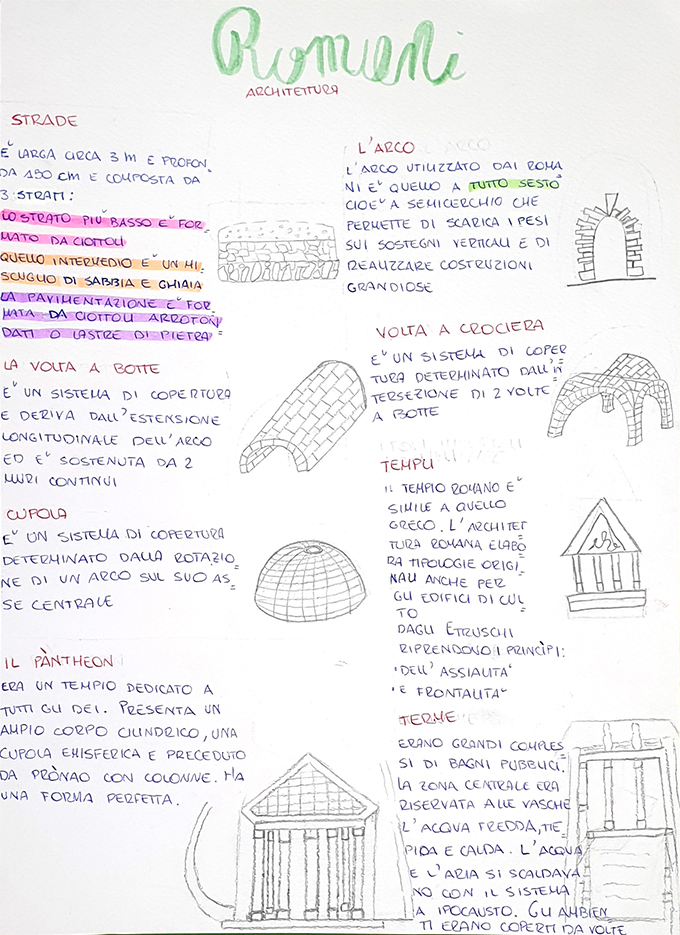 Romani
ARCHITETTURA
STRADE
E' LARGA CIRCA 3 M E PROFON
DA 150 CM E COMPOSTA DA
3 STRATI:
LO STRATO PIU' BASSO E' FOR_
MATO DA CIOTTOLI
QUELLO INTERMEDIO E' UN MI_
SCUGLIO DI SABBIA E GHIAIA
LA PAVIMENTAZIONE E' FOR_
MATA DA CIOTTOLI ARROTON=
DATI O LASTRE DI PIETRA
LA VOLTA A BOTTE
E' UN SISTEMA DI COPERTURA
E DERIVA DALL'ESTENSIONE
LONGITUDINALE DELL'ARCO
ED E' SOSTENUTA DA 2
MURI CONTINUI
CUPOLA
E' UN SISTEMA DI COPERTURA
DETERMINATO DALLA ROTAZIO=
NE DI UN ARCO SUL SUO AS=
SE CENTRALE
IL PÀNTHEON
ERA UN TEMPIO DEDICATO A
TUTTI GLI DEI. PRESENTA UN
AMPIO CORPO CILINDRICO, UNA
CUPOLA EMISFERICA E PRECEDUTO
DA PRÒNAO CON COLONNE. HA
UNA FORMA PERFETTA.
L'ARCO
L'ARCO UTILIZZATO DAI ROMA
NI E' QUELLO A TUTTO SESTO
CIOE' A SEMICERCHIO CHE
PERMETTE DI SCARICA I PESI
SUI SOSTEGNI VERTICALI E DI
REALIZZARE COSTRUZIONI
GRANDIOSE
VOLTA A CROCIERA
E' UN SISTEMA DI COPER
TURA DETERMINATO DALL'IN
TERSEZIONE DI 2 VOLTE
A BOTTE
TEMPLI
IL TEMPIO ROMANO E'
SIMILE A QUELLO
GRECO. L'ARCHITET
TURA ROMANA ELABO
RA TIPOLOGIE ORIGI=
NALI ANCHE PER
GLI EDIFICI DI CUL=
TO
DAGLI ETRUSCHI
RIPRENDONO I PRINCÌPI:
'DELL'ASSIALITA'
'E FRONTALITA'
TERME
ERANO GRANDI COMPLES=
SI DI BAGNI PUBBLICI.
LA ZONA CENTRALE ERA
RISERVATA ALLE VASCHE
L'ACQUA FREDDA, TIE=
PIDA E CALDA. L'ACQUA
E L'ARIA SI SCALDAVA
NO CON IL SISTEMA
A IPOCAUSTO. GLI AMBIEN
TI ERANO COPERTI DA VOLTE